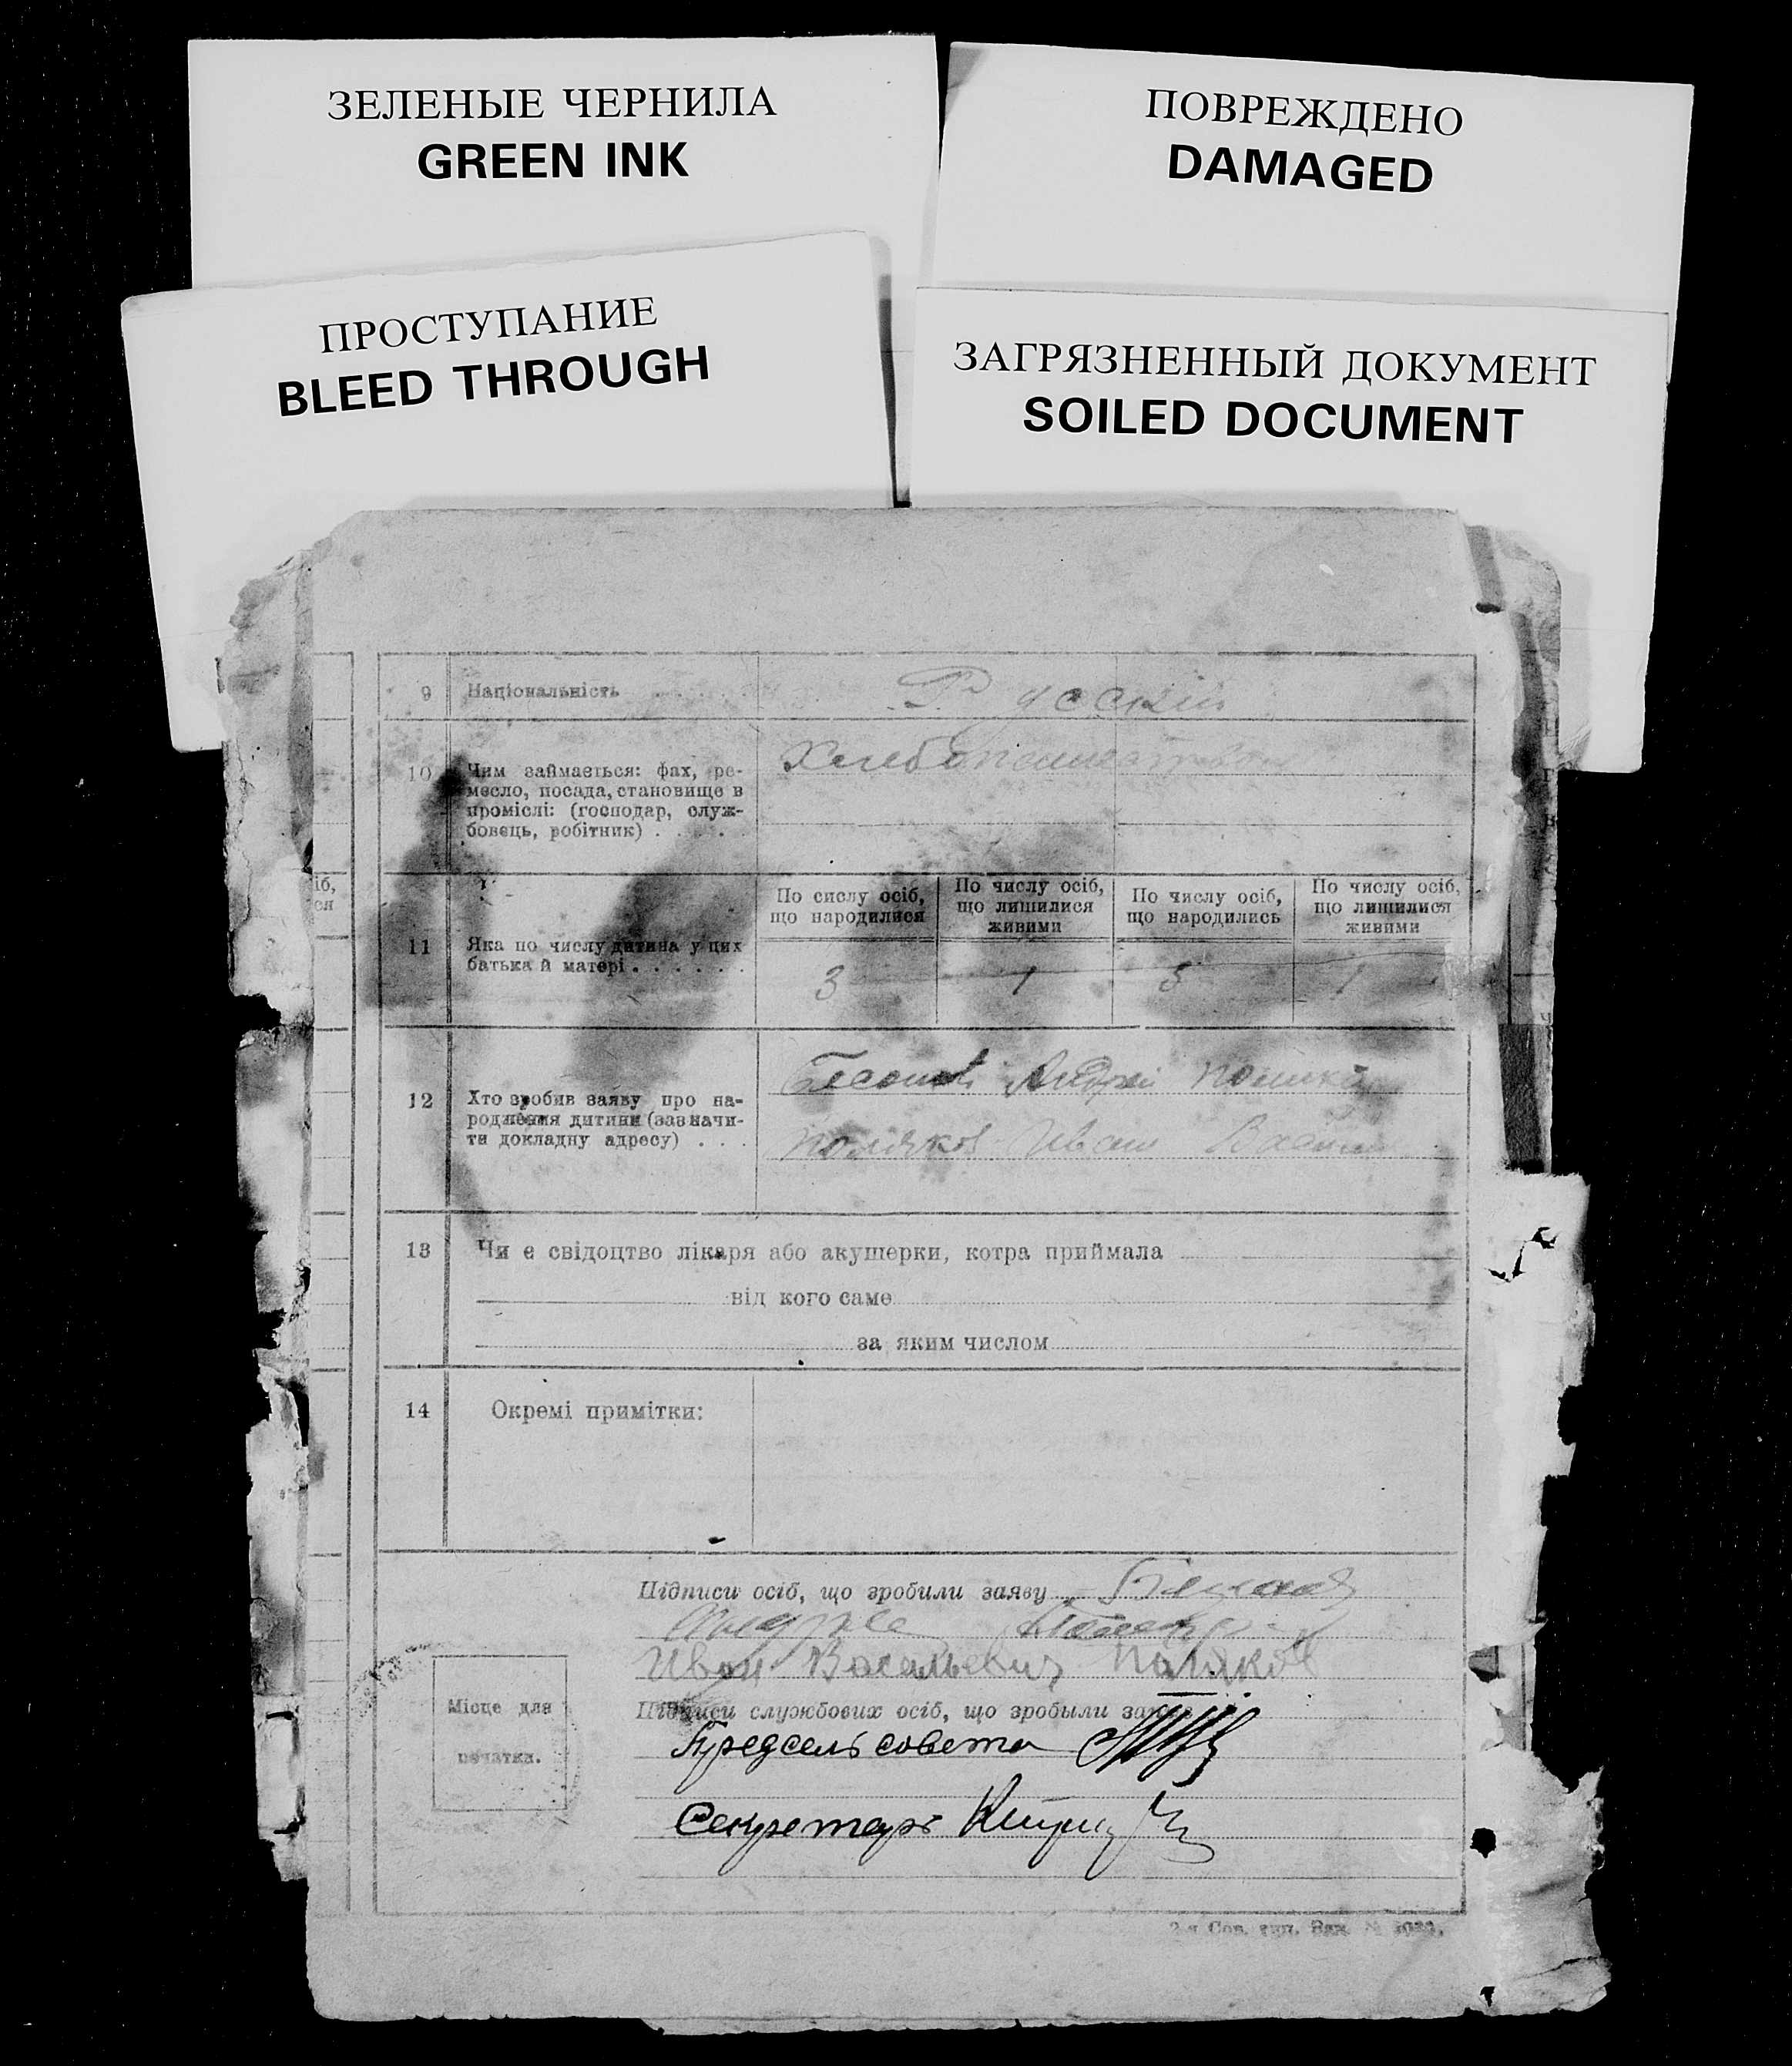 ЗЕЛЕНЫЕ ЧЕРНИЛА
GREEN INK
ПОВРЕЖДЕНО
DAMAGED
ПРОСТУПАНИЕ
BLEED THROUGH
ЗАГРЯЗНЕННЫЙ ДОКУМЕНТ
SOILED DOCUMENT
9 Національність Русский
10 Чим займається: фах, ре-
месло, посада, становище в
проміслі: (господар, служ-
бовець, робітник) . . . . .
Хлебопашеством
іб,
ся
11 Яка по числу дитина у цих
батька й матері . . . . . .
По сислу осіб,
що народилися
По числу осіб,
що лишилися
живими
По числу осіб,
що народились
По числу осіб,
що лишилися
живими
3 1 3 1
12 Хто зробив заяву про на-
родження дитини (зазначи-
ти докладну адресу) . . .
Андрей
Поляков Иван
13 Чи є свідоцтво лікаря або акушерки, котра приймала
від кого саме
за яким числом
14 Окремі примітки:
Підписи осіб, що зробили заяву
Иван Васильевич Поляков
Місце для
печатки.
Підписи службових осіб, що зробыли
Предсельсовета
Секретарь
2-я Сов. тип. Зак. №